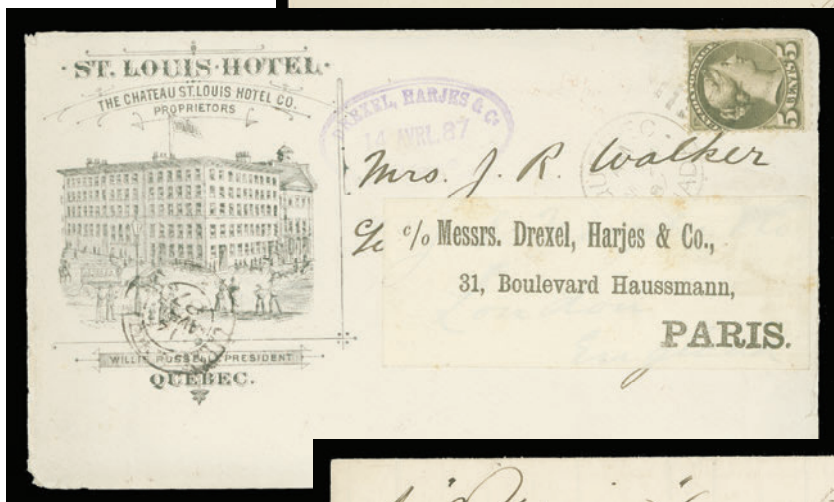 · ST. LOUIS · HOTEL ·
THE CHATEAU ST. LOUIS HOTEL CO.
PROPRIETORS
WILLIS RUSSELL, PRESIDENT
QUEBEC.
DREXEL, HARJES & Co
14 AVRL. 87
5 CENTS 5
Mrs. J. R. Walker
c/o Messrs. Drexel, Harjes & Co.,
31, Boulevard Haussmann,
PARIS.
London